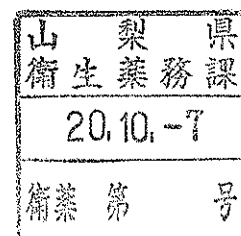 山梨県
衛生薬務課
20.10.-7
衛薬第 号